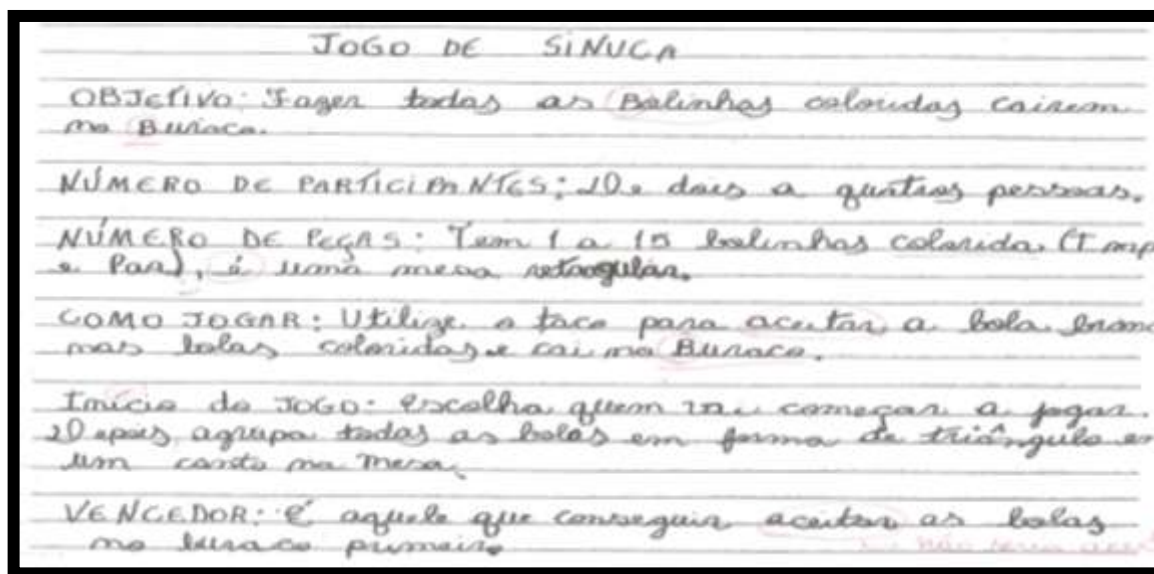 JOGO DE SINUCA
OBJETIVO: Fazer todas as Bolinhas coloridas cairem
no Buraco.
NÚMERO DE PARTICIPANTES: De dois a quatros pessoas.
NÚMERO DE PEÇAS: Tem 1 a 15 bolinhas colorida (Imp
e Par), é uma mesa retangular.
COMO JOGAR: Utilize o taco para aceitar a bola branc
nas bolas coloridas e cai no Buraco.
Início do JOGO: escolha quem vai começar a jogar.
Depois agrupa todas as bolas em forma de triângulo em
um canto na mesa.
VENCEDOR: É aquele que conseguir aceitar as bolas
no buraco primeiro
não seria